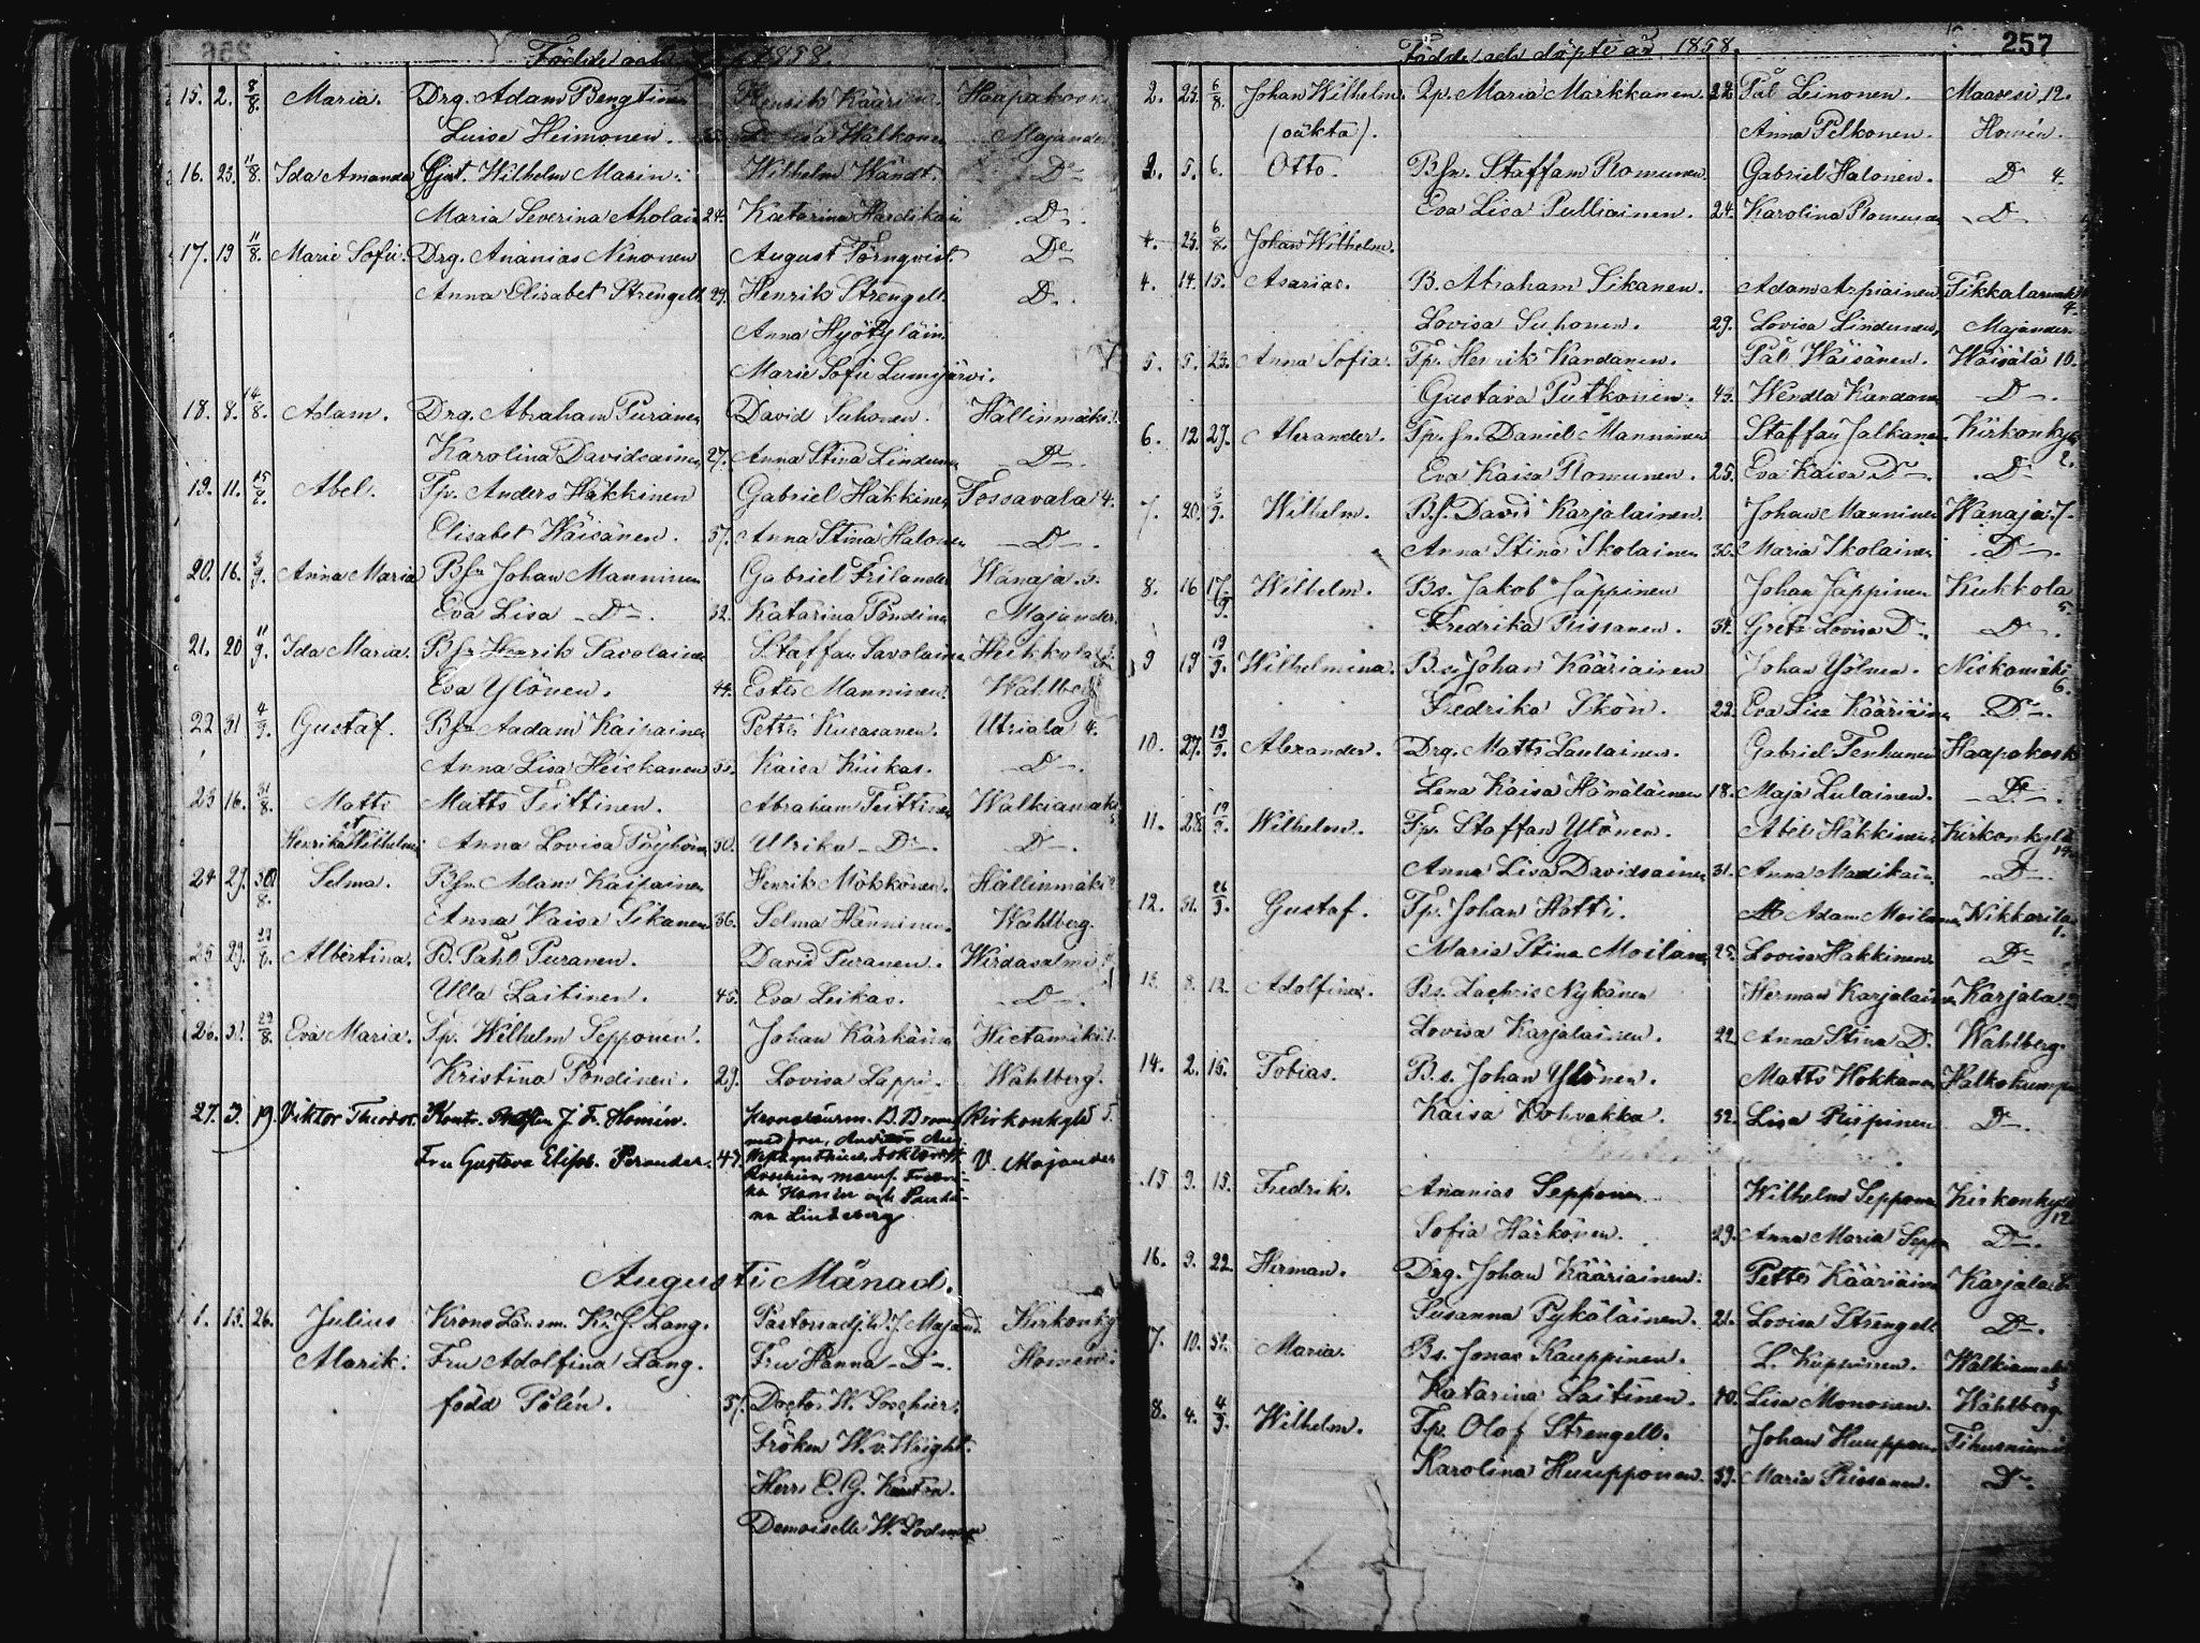 Födde och 1858.
15. 2. 8/8. Maria. Drg. Adam Bengtinen Henrik Kääriäinen Haapakoski
Luise Heimonen. Wälkonen Majander
16. 23. 11/8. Ida Amanda Gjut. Wilhelm Marin. Wilhelm Wändt. Do
Maria Severina Aholain 24. Katarina Hardikain Do.
17. 19 11/8. Marie Sofie. Drg. Ananias Ninonen August Törnqvist. Do
Anna Elisabet Strengell 29. Henrik Strengell. Do.
Anna Hyötyläin
Marie Sofie Lumijärvi.
18. 8. 14/8. Adam. Drg. Abraham Puranen David Suhonen. Hällinmäki
Karolina Davidsainen 27. Anna Stina Lindunen Do.
19. 11. 15/8. Abel. Tp. Anders Häkkinen Gabriel Häkkinen Tossavala 4.
Elisabet Wäisänen. 37. Anna Stina Halonen Do.
20. 16. 3/9. Anna Maria Bfn Johan Manninen Gabriel Frilander Wanaja. 3.
Eva Lisa Do. 32. Katarina Pöndinen Majander
21. 20 11/9. Ida Maria. Bfn Henrik Savolainen Staffan Savolainen Heikkola
Eva Ylönen. 44. Ester Manninen. Wahlberg
22 31 4/9. Gustaf. Bfn Aadam Kaipainen Petter Kurasanen. Utriala 4.
Anna Lisa Heiskanen 35. Kaisa Kiukas. Do.
23 16. 31/8. Matts Matts Teittinen. Abraham Teittinen Walkiamäki
et Henrika Wilhelmi Anna Lovisa Pöyhönen 30. Ulrika Do. Do.
24 27. 30/8. Selma. Bfn Adam Kaipainen Henrik Mökkönen. Hällinmäki
Anna Kaisa Sikanen 36. Selma Hänninen. Wahlberg.
25 29. 29/8. Albertina. B. Pahl Puranen. David Puranen. Wirdasalmi
Ulla Laitinen. 45. Eva Leikas. Do.
26. 31. 29/8. Eva Maria. Sp. Wilhelm Sepponen. Johan Kärkäinen Hietamäki
Kristina Pöndinen. 29. Lovisa Lappi. Wahlberg.
27. 3. 19. Viktor Theodor. J. F. Homén. Kronolänsm. B. Kirkonkylä 5.
med fru,
Fru Gustava Elisab. Perander. 47. V. Majander
Homén och
na Lindeberg
Augusti Månad.
1. 15. 26. Julius Krono Länsm. K. J. Lang. Pastorsadj. W. J. Majand. Kirkonky
Alarik. Fru Adolfina Lang. Fru Hanna Do. Homén.
född Polén. 37. Doctor W. Soschier.
Fröken W. v. Wright.
Herr E. G.
Demoiselle W. Lodman
Födde och döpte år 1858. 257
2. 25. 6/8. Johan Wilhelm. Qp. Maria Markkanen. 22 Pål Leinonen. Maavesi 12.
(oäkta). Anna Pelkonen. Homén.
2. 5. 6. Otto. Bfn. Staffan Romunen Gabriel Halonen. Do 4.
Eva Lisa Pulliainen. 24. Karolina Romunen Do
4. 25. 6/8. Johan Wilhelm.
4. 14. 15. Asarias. B. Abraham Sikanen. Adam Arpiainen Tikkalanmäki 4.
Lovisa Suhonen. 29. Lovisa Lindunen, Majander.
5. 5. 23. Anna Sofia. Tp. Henrik Kandanen. Pål Wäisänen. Wäisälä 10.
Gustava Putkonen. 43. Wendla Kandanen Do.
6. 12 29. Alexander. Tp. fn. Daniel Manninen Staffan Jalkanen. Kirkonkyl 2.
Eva Kaisa Romunen. 25. Eva Kaisa Do. Do
7. 20. 5/9. Wilhelm. Bf. David Karjalainen. Johan Manninen Wanaja. 7.
Anna Stina Ikolainen 36. Maria Ikolainen Do.
8. 16 17/9. Wilhelm. Bs. Jakob Jäppinen Johan Jäppinen Kukkola 5.
Fredrika Rissanen. 34. Greta Lovisa Do. Do.
9 19 19/9. Wilhelmina. Bs. Johan Kääriainen Johan Ylönen. Niskamäki 6.
Fredrika Ikön. 22. Eva Lisa Kääriäinen Do.
10. 27. 19/9. Alexander. Drg. Matts Laulainen. Gabriel Tenhunen Haapakoski
Lena Kaisa Hämäläinen 18. Maja Lulainen. Do.
11. 28. 19/9. Wilhelm. Tp. Staffan Ylönen. Abel Häkkinen Kirkonkylä 14.
Anna Lisa Davidsainen 31. Anna Madikain. Do.
12. 31. 26/9. Gustaf. Tp. Johan Hotti. Adam Moilanen Nikkarila 1.
Maria Stina Moilanen 25. Lovisa Hakkinen. Do
13. 8. 12. Adolfina. Bs. Zachris Nykänen Herman Karjalainen Karjala.
Lovisa Karjalainen. 22 Anna Stina Do. Wahlberg.
14. 2. 15. Tobias. B.s. Johan Ylönen. Matts Hokkanen Halkokumpu
Kaisa Kohvakka. 32. Lisa Piispinen Do.
15 9. 15. Fredrik. Ananias Sepponen Wilhelm Sepponen Kirkonkylä 12.
Sofia Härkönen. 29. Anna Maria Seppon Do.
16. 9. 22. Herman. Drg. Johan Kääriainen. Petter Kääriäinen Karjala 8.
Susanna Pykäläinen. 21. Lovisa Strengell Do.
17. 10. 31. Maria. Bs. Jonas Kauppinen. L. Kuppinen. Walkiamäki 3
Katarina Laitinen. 40. Lisa Mononen. Wahlberg
18. 4. 4/9. Wilhelm. Tp. Olof Strengell. Johan Huupponen Tihusniemi
Karolina Huupponen. 39. Maria Rissanen. Do.